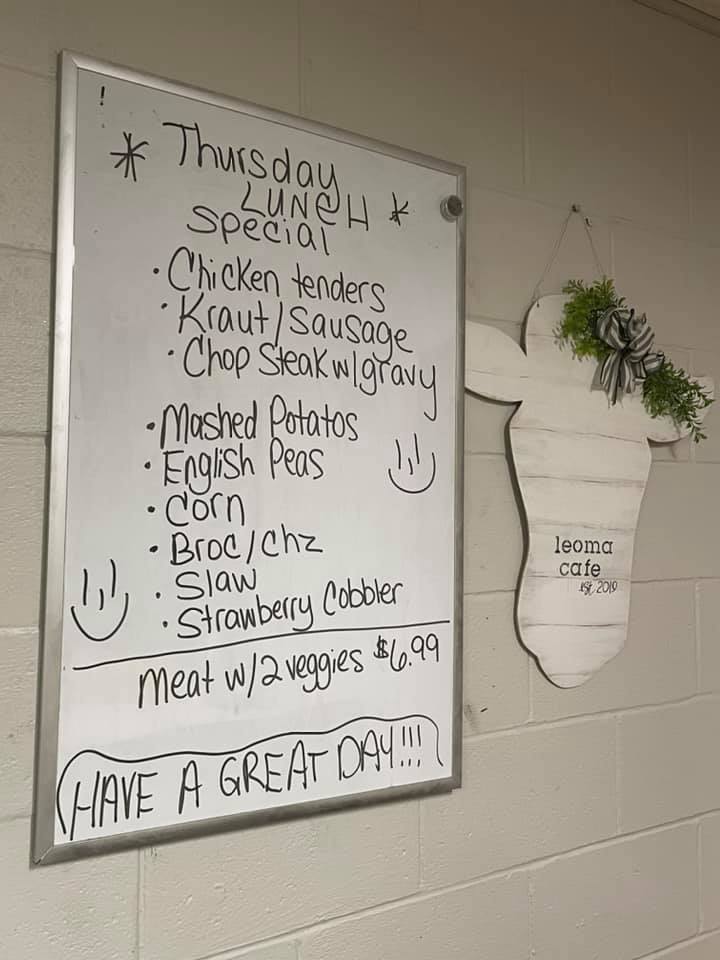 !
* Thursday
LUNCH *
special
• Chicken tenders
• Kraut/Sausage
• Chop Steak w/gravy
• Mashed Potatos
• English Peas
• Corn
• Broc/Chz
• Slaw
• Strawberry Cobbler
Meat w/2 veggies $6.99
HAVE A GREAT DAY!!!
leoma
cafe
est. 2019